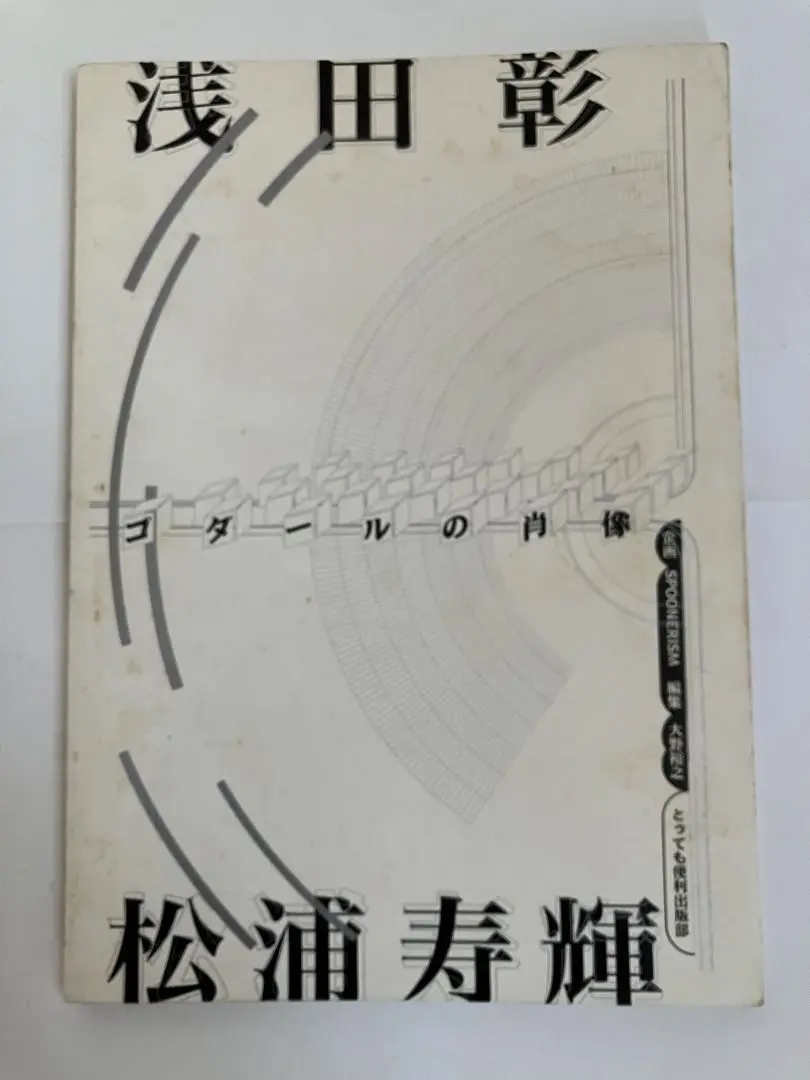 浅田彰
ゴダールの肖像
企画 SPOONERISM 編集 大野裕之
とっても便利出版部
松浦寿輝